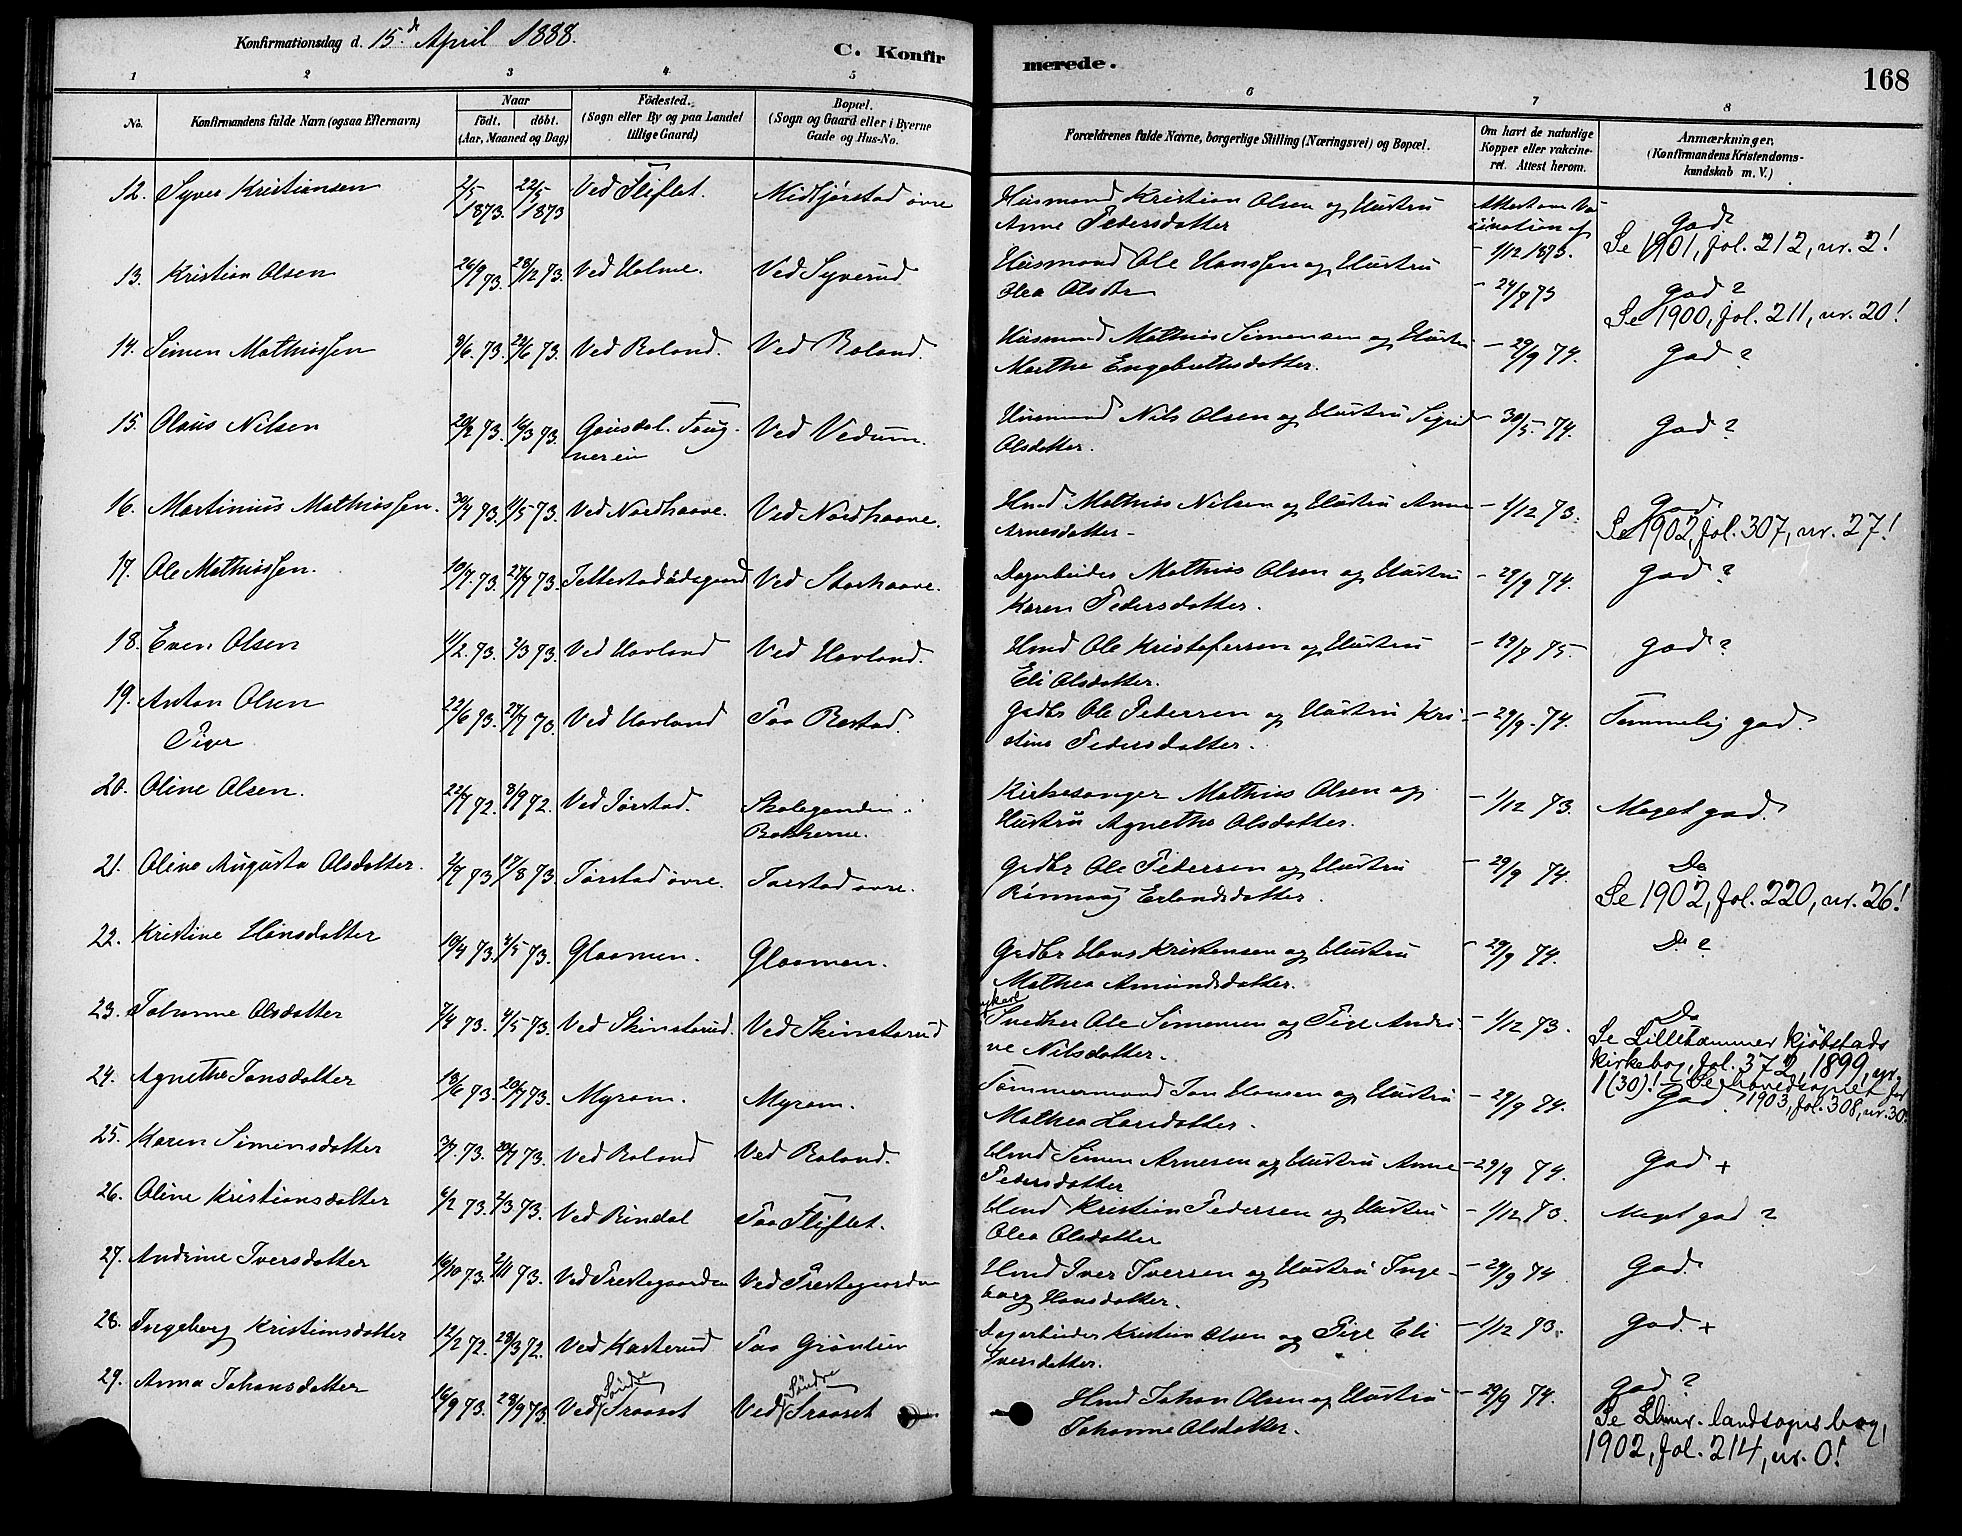 Konfirmationsdag d. 15de April 1888.
C. Konfirmerede.
168
1 2 3 4 5 6 7 8
No. Konfirmandens fulde Navn (ogsaa Efternavn) Naar födt. döbt. (Aar, Maaned og Dag) Födested. (Sogn eller By og paa Landet tillige Gaard) Bopæl. (Sogn og Gaard eller i Byerne Gade og Hus-No. Forældrenes fulde Navne, borgerlige Stilling (Næringsvei) og Bopæl. Om havt de naturlige Kopper eller vakcineret. Attest herom. Anmærkninger. (Konfirmandens Kristendomskundskab m. V.)
12. Syver Kristiansen 2/5 1873 22/5 1873 Ved Fliflet. Midtjørstad øvre Husmand Kristian Olsen og Hustru Anne Pedersdatter Attest om Vaccination af - 1/12 1873. God
Se 1901, fol. 212, nr. 2!
13. Kristian Olsen 26/9 73. 28/12 73. Ved Holme. Ved Syverud Husmand Ole Hanssen og Hustru Olea Olsdtr - 24/7 75 God?
Se 1900, fol. 211, nr. 20!
14. Simen Mathiassen 9/6. 73. 29/6 73. Ved Roland. Ved Roland. Husmand Mathias Simensen og Hustru Marthe Engebretsdatter. - 29/9 74. God?
15. Olaus Nilsen 20/2 73. 16/3 73. Gausdal. Ved Vedum. Husmand Nils Olsen og Hustru Sigrid Olsdatter. - 30/5 74. God?
16. Martinius Mathiassen. 30/4 73. 11/5 73. Ved Nordhaave. Ved Nordhaave. Hmd Mathias Nilsen og Hustru Anne Arnesdatter - - 1/12 73. God
Se 1902, fol. 307, nr. 27!
17. Ole Mathiassen. 10/7. 73. 27/7 73. Jettestadødegaard Ved Storhaave. Dagarbeider Mathias Olsen og Hustru Karen Pedersdatter. - 29/9 74. God?
18. Even Olsen 11/2. 73. 2/3 73. Ved Hovland Ved Hovland. Hmd Ole Kristofersen og Hustru Eli Olsdatter. - 19/7 75. God?
19. Anton Olsen 22/6 73. 27/7 73. Ved Hovland Paa Rostad. Grdbr Ole Pedersen og Hustru Kristine Pedersdatter. - 29/9. 74. Temmelig god.
Piger
20. Oline Olsen. 22/7 72. 8/9 72. Ved Jørstad. Skolegaarden i Bakkerne. Kirkesanger Mathias Olsen og Hustru Agnethe Olsdatter. - 1/12 73. Meget god.
21. Oline Augusta Olsdatter. 2/7 73 17/8 73. Jørstad øvre. Jørstad øvre. Grdbr Ole Pedersen og Hustru Rønnaug Erlandsdatter. - 29/9 74. Do
Se 1902, fol. 220, nr. 26!
22. Kristine Hansdatter 19/4 73. 4/5 73. Glaamen. Glaamen. Grdbr Hans Kristensen og Hustru Mathea Amundsdatter. - 29/9 74. Do?
23. Johanne Olsdatter 7/4 73. 4/5 73. Ved Skinstarud. Ved Skinstarud Ungkarl Snedker Ole Simensen og Pige Andrine Nilsdatter. - 1/12 73. Do
Se Lillehammer kjøbstads kirkebog, fol. 372, 1899, nr. 1 (30)! - Se hovedsognet for 1903, fol. 308, nr. 30.
24. Agnethe Jonsdatter 13/6 73. 20/7 73. Myrom. Myrom. Tømmermand Jon Hansen og Hustru Mathea Larsdatter. - 29/9 74. God
25. Karen Simensdatter 3/7. 73. 20/7 73. Ved Roland Ved Roland. Hmd Simen Arnesen og Hustru Anne Pedersdatter - 29/9 74. God +
26. Oline Kristiansdatter 6/2 73. 2/3 73. Ved Rindal Paa Fliflet. Hmd Kristian Pedersen og Hustru Olea Olsdatter - 1/12 73. Meget god?
27. Andrine Iversdatter 16/10 73. 2/11 73. Ved Prestegaarden Ved Prestegaarden Hmd Iver Iversen og Hustru Ingeborg Hansdatter. - 29/9 74 God.
28. Ingeborg Kristiansdatter 12/2 72. 29/3 72. Ved Kasterud Paa Grønlien Dagarbeider Kristian Olsen og Pige Eli Iversdatter. - 1/12 73. God. +
29. Anna Johansdatter 16/9 73. 28/9 73 Ved Søndre Fraaset Ved Søndre Fraaset Hmd Johan Olsen og Hustru Johanne Olsdatter. - 29/9 74. God?
Se Lhmr. landsogns bog, 1902, fol. 214, nr. 0!